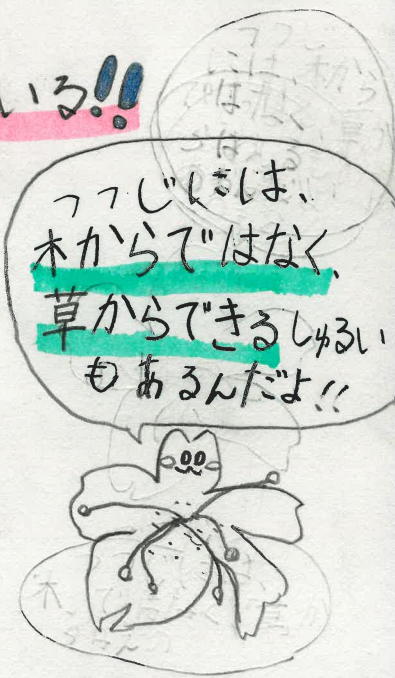 いる!!
つつじには、
木からではなく、
草からできるしゅるい
もあるんだよ!!